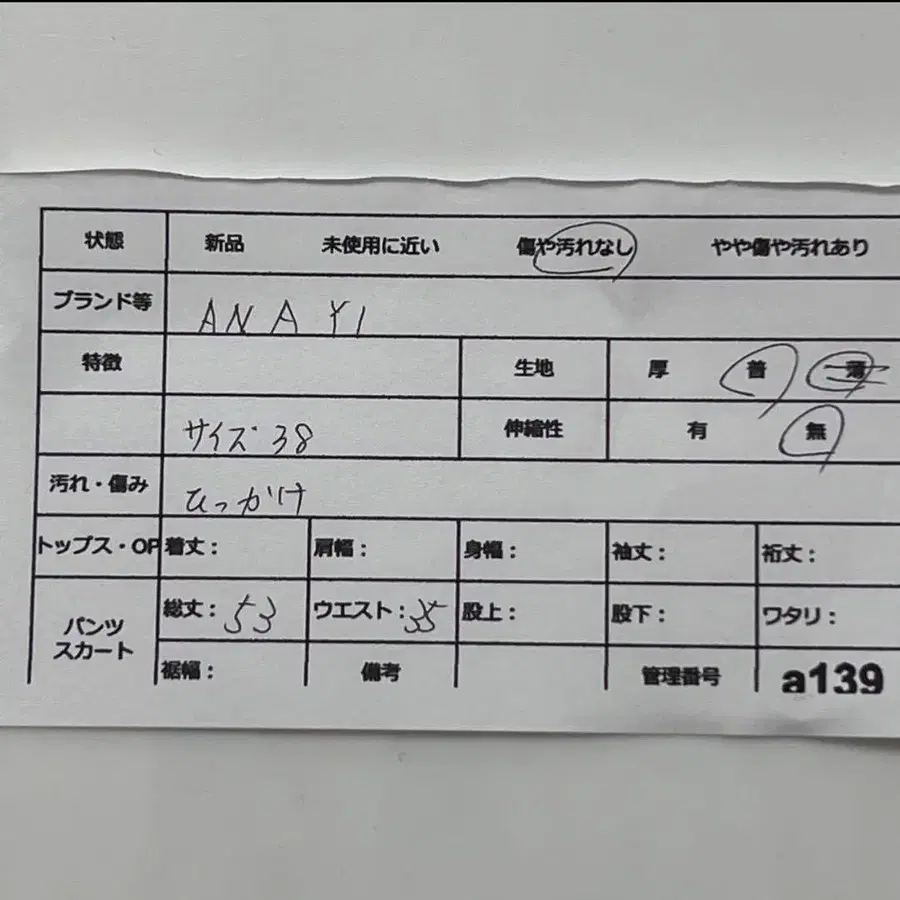 状態 新品 未使用に近い 傷や汚れなし やや傷や汚れあり
ブランド等 ANAYI
特徴 生地 厚 普 薄
サイズ 38 伸縮性 有 無
汚れ・傷み ひっかけ
トップス・OP 着丈： 肩幅： 身幅： 袖丈： 裄丈：
パンツ スカート 総丈：53 ウエスト：35 股上： 股下： ワタリ：
裾幅： 備考 管理番号 a139